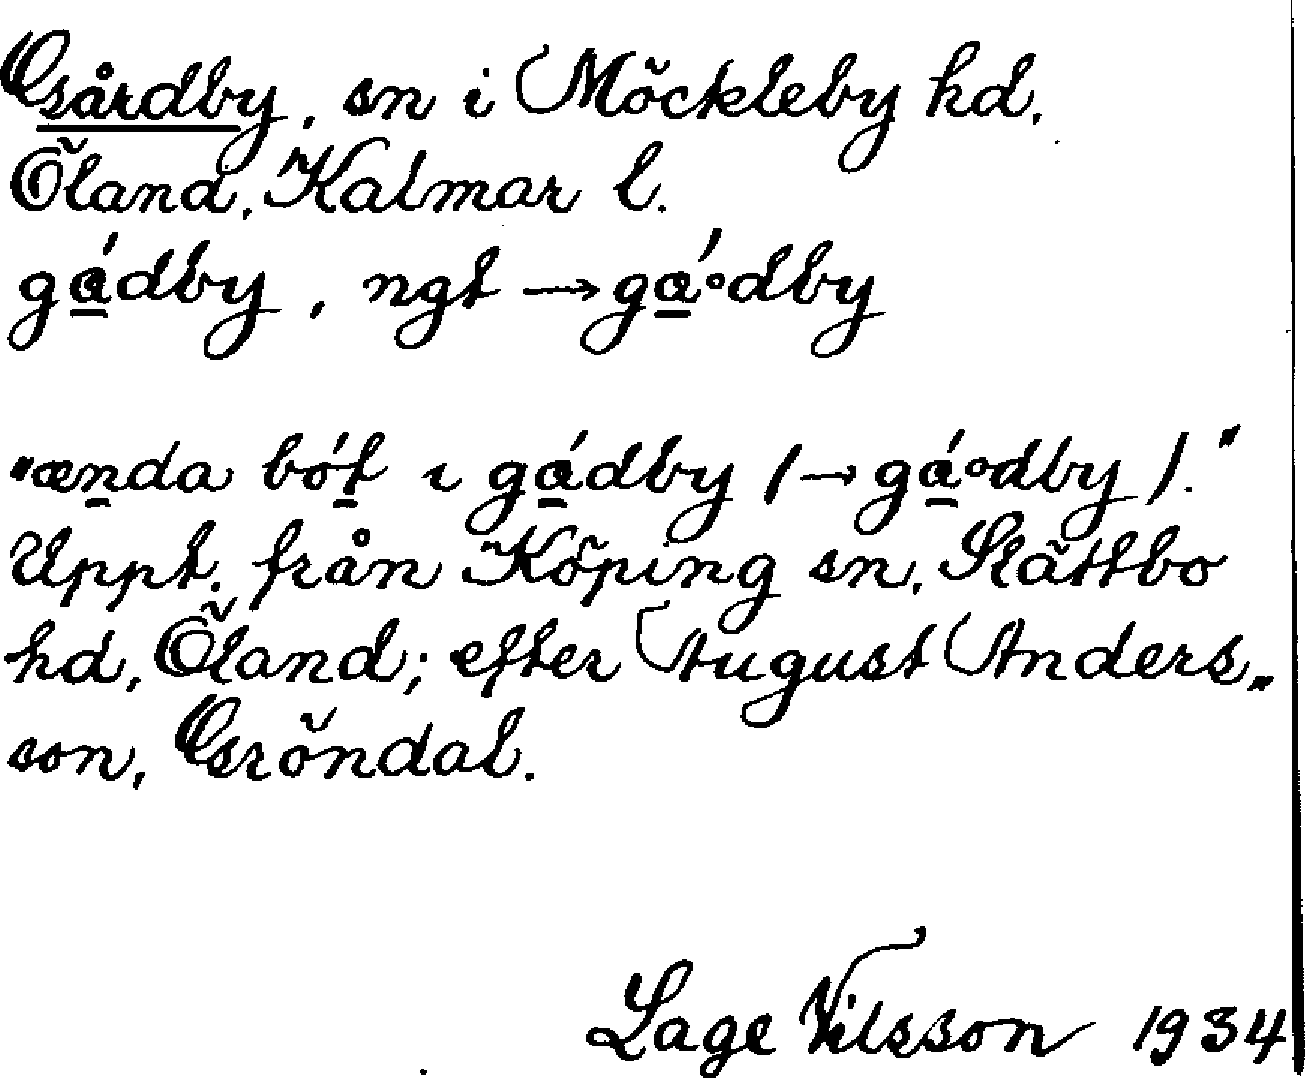 Gårdby, sn i Möckleby hd,
Öland, Kalmar l.
gá̱dby, ngt → gá̱°dby
"æṉda bóṯ ı gá̱dby /→ gá̱°dby/."
Uppt. från Köping sn, Slättbo
hd, Öland; efter August Anders„
son, Gröndal.
Lage Nilsson 1934